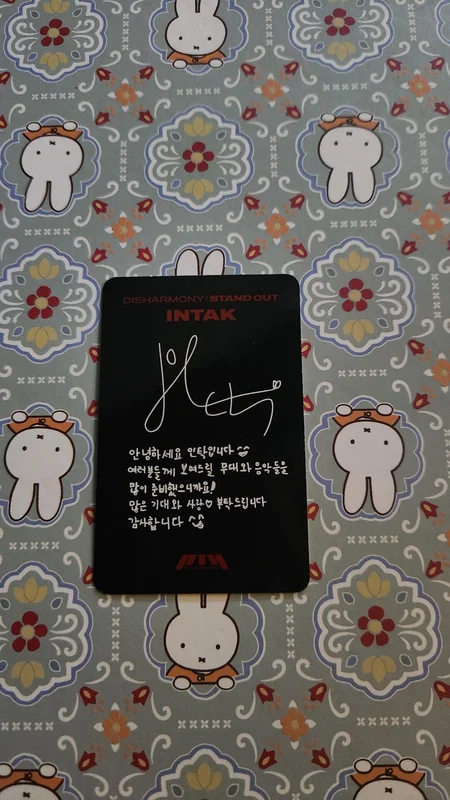 DISHARMONY : STAND OUT
INTAK
인탁
안녕하세요 인탁입니다
여러분들게 보여드릴 무대와 음악들을
많이 준비했으니까요!
많은 기대와 사랑♡ 부탁드립니다
감사합니다
P1H